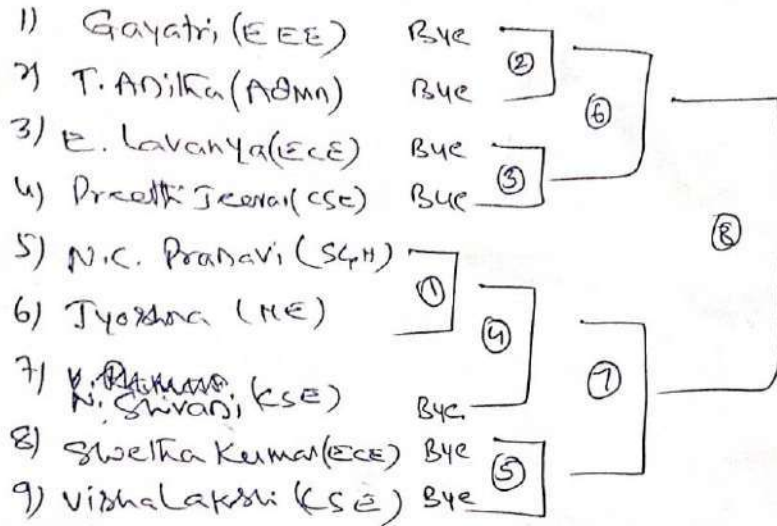 1) Gayatri (EEE) Bye
2) T. Anitha (ADMN) Bye ②
⑥
3) E. Lavanya (ECE) Bye
4) Preethi Jeevan (CSE) Bye ③
⑧
5) N.C. Pranavi (S&H)
①
6) Jyoshna (ME) ④
7) N. Shivani (CSE) Bye ⑦
8) Swetha Kumari (ECE) Bye
⑤
9) Vishalakshi (CSE) Bye